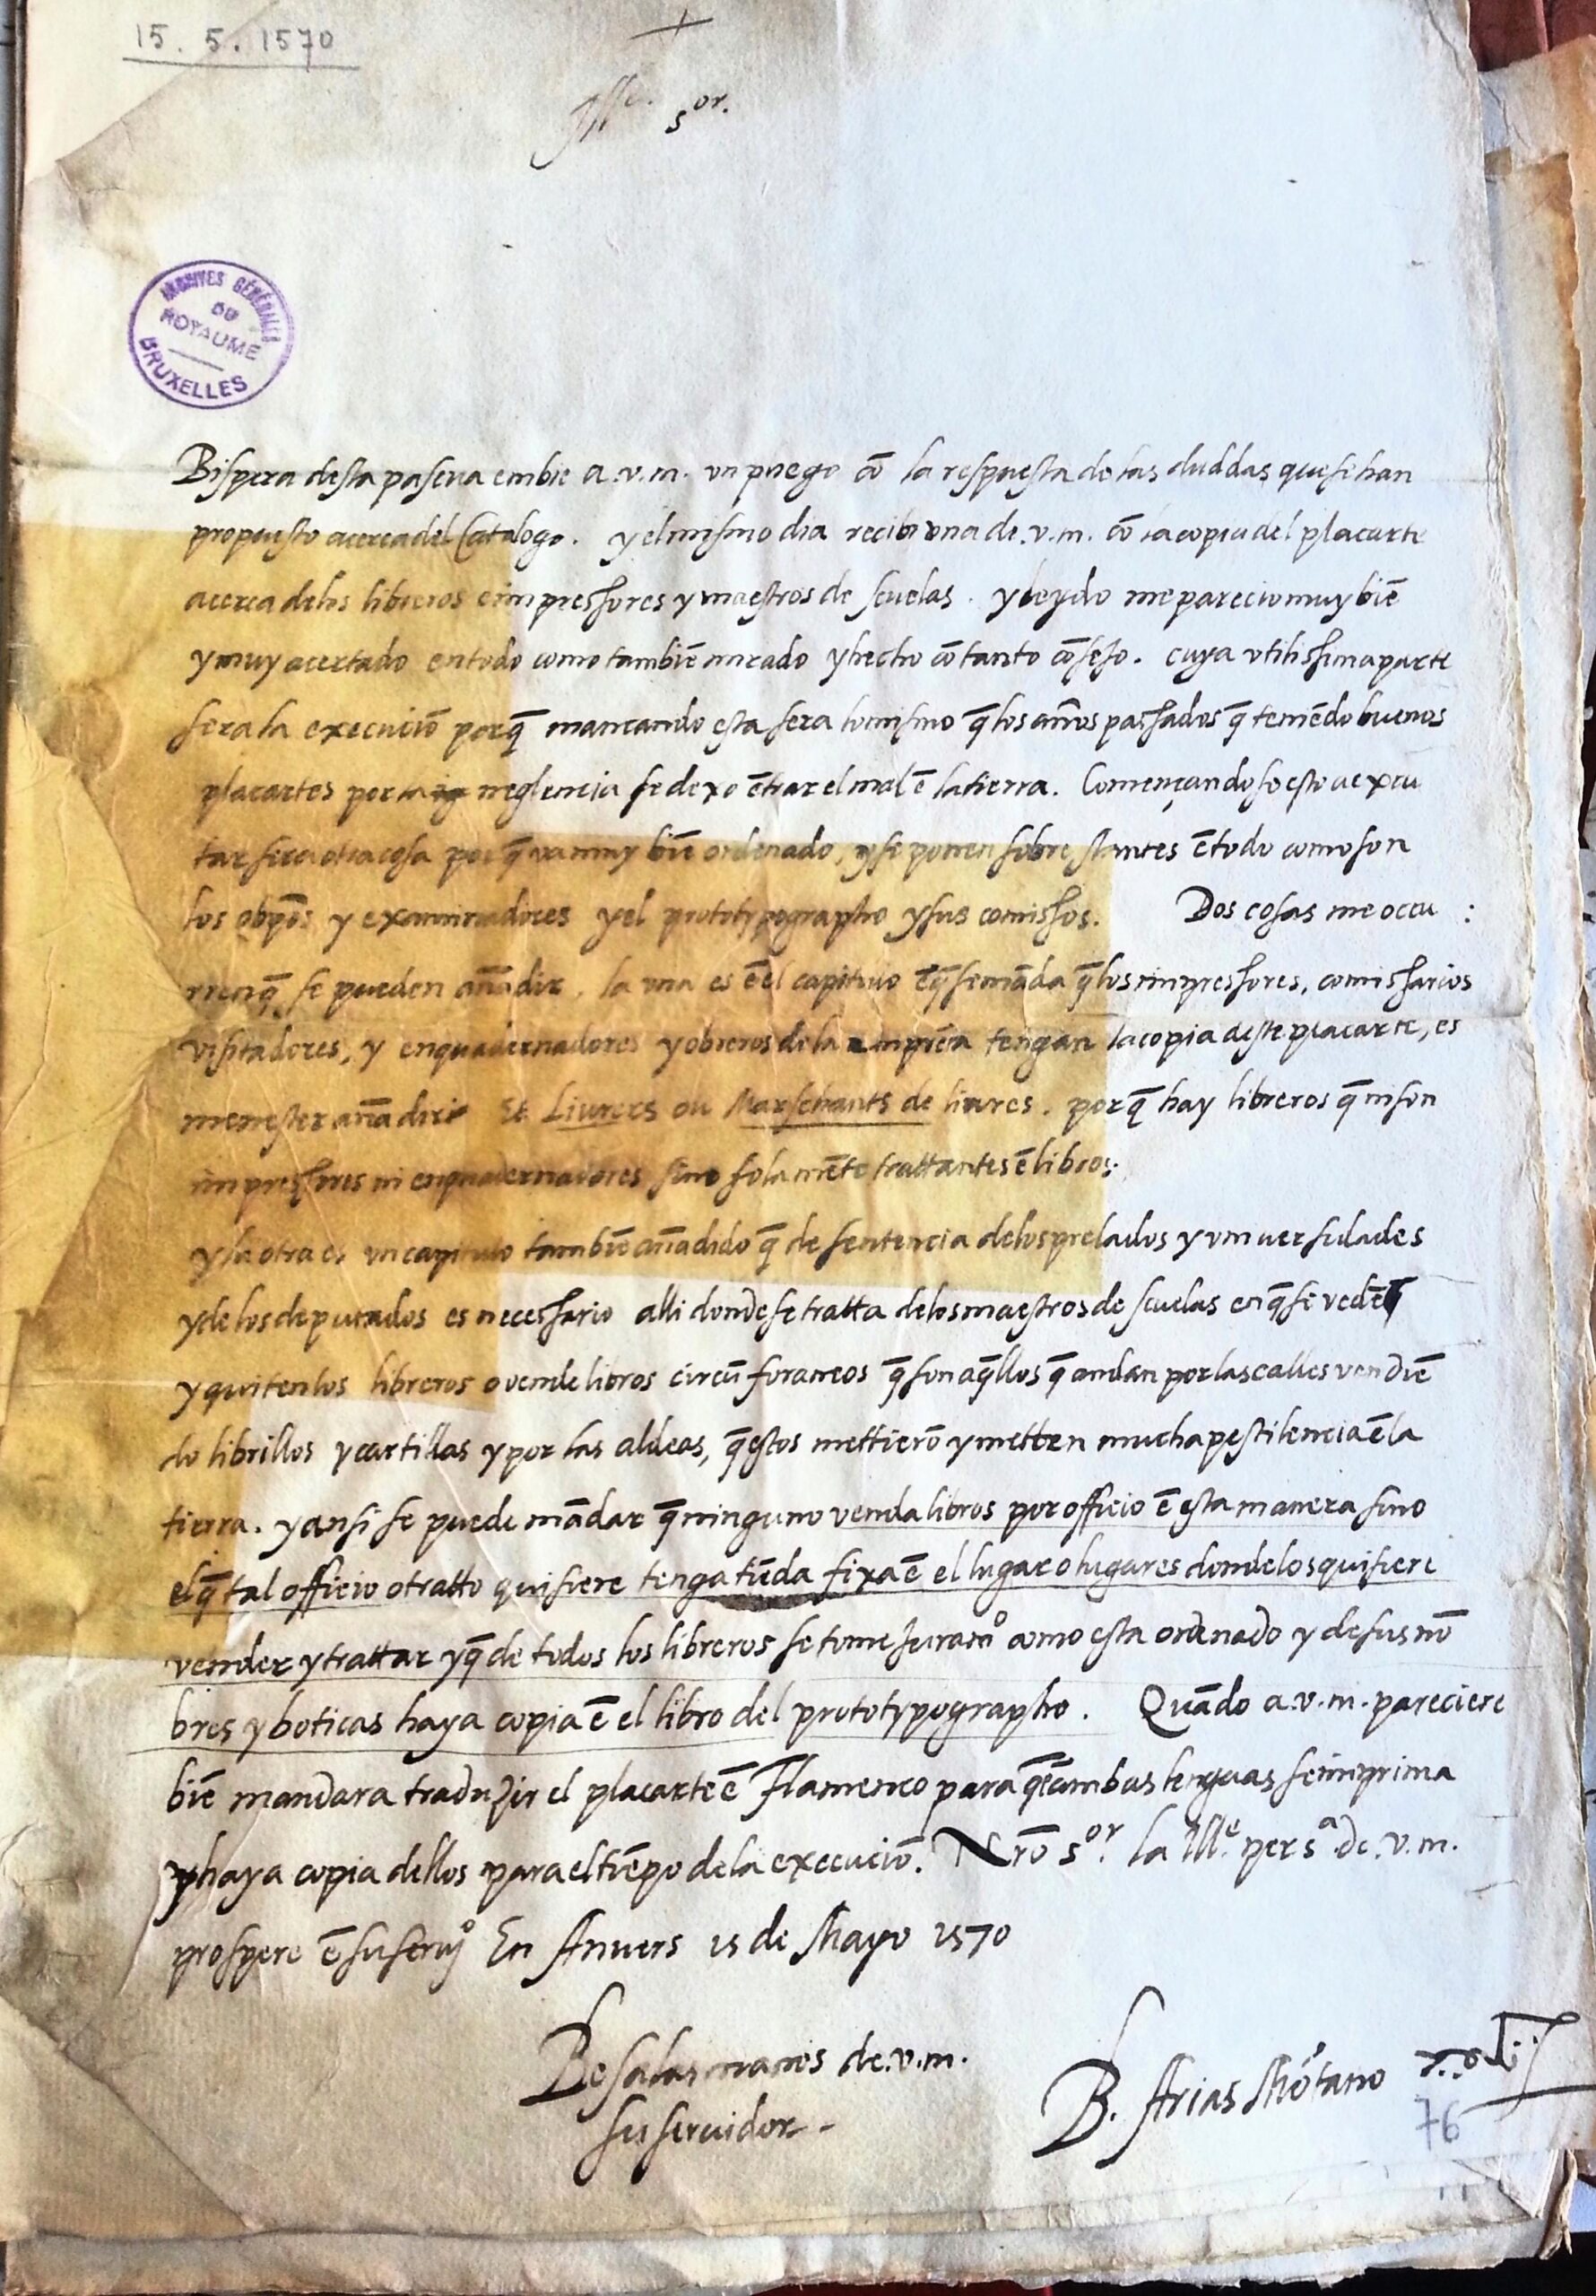 15. 5. 1570
+
Ille. sor.
ARCHIVES GÉNÉRALES
DU
ROYAUME
BRUXELLES
Bispera desta pascua embie a .v.m. un pliego cō la respuesta de las duddas que se han
propuesto acerca del Catalogo. y el mismo dia recibi una de .v.m. cō la copia del placarte
acerca delos libreros e impressores y maestros de scuelas. y leydo me parecio muy biē
y muy acertado en todo como tambiē mirado y hecho cō tanto cōsejo. cuya utilissima parte
sera la execuciō porq̄ mancando esta sera lo mismo q̄ los annos passados q̄ teniēdo buenos
placartes por la neglencia se dexo ētrar el mal ē la tierra. Començandose esto a excu
tar sera otra cosa porq̄ va muy biē ordenado, y se ponen sobre stantes ē todo como son
los obpōs y examinadores y el prototypographo y sus comissos. Dos cosas me occu :
rren q̄ se pueden añadir. la una es ē el capitulo ē q̄ se māda q̄ los impressores, comissarios
visitadores, y enquadernadores y obreros de la imprēta tengan la copia deste placarte, es
menester añadir Et Livrers ou Marschants de livres. porq̄ hay libreros q̄ ni son
impressores ni enquadernadores sino solamēte trattantes ē libros.
y la otra es un capitulo tambiē añadido q̄ de sentencia delos prelados y universidades
y de los deputados es necessario alli donde se tratta delos maestros de scuelas en q̄ se vedē
y quiten los libreros o vende libros circū foraneos q̄ son aq̄llos q̄ andan por las calles vendiē
do librillos y cartillas y por las aldeas, q̄ estos mettierō y metten mucha pestilencia ē la
tierra. y ansi se puede mādar q̄ ninguno venda libros por officio ē esta manera sino
el q̄ tal officio o tratto quisiere tenga tiēda fixa ē el lugar o lugares donde los quisiere
vender y trattar y q̄ de todos los libreros se tome juramº como esta ordenado y de sus nō
bres y boticas haya copia ē el libro del prototypographo. Quādo a .v.m. pareciere
biē mandara traduzir el placarte ē Flamenco para q̄ ē ambas lenguas se imprima
y haya copia dellos para el tiēpo de la execuciō. Nrō sor. la Ille. persª de .v.m.
prospere ē su seruº En Anvers 15 de Mayo 1570
Besa las manos de .v.m.
su servidor.
B. Arias Mōtano
76